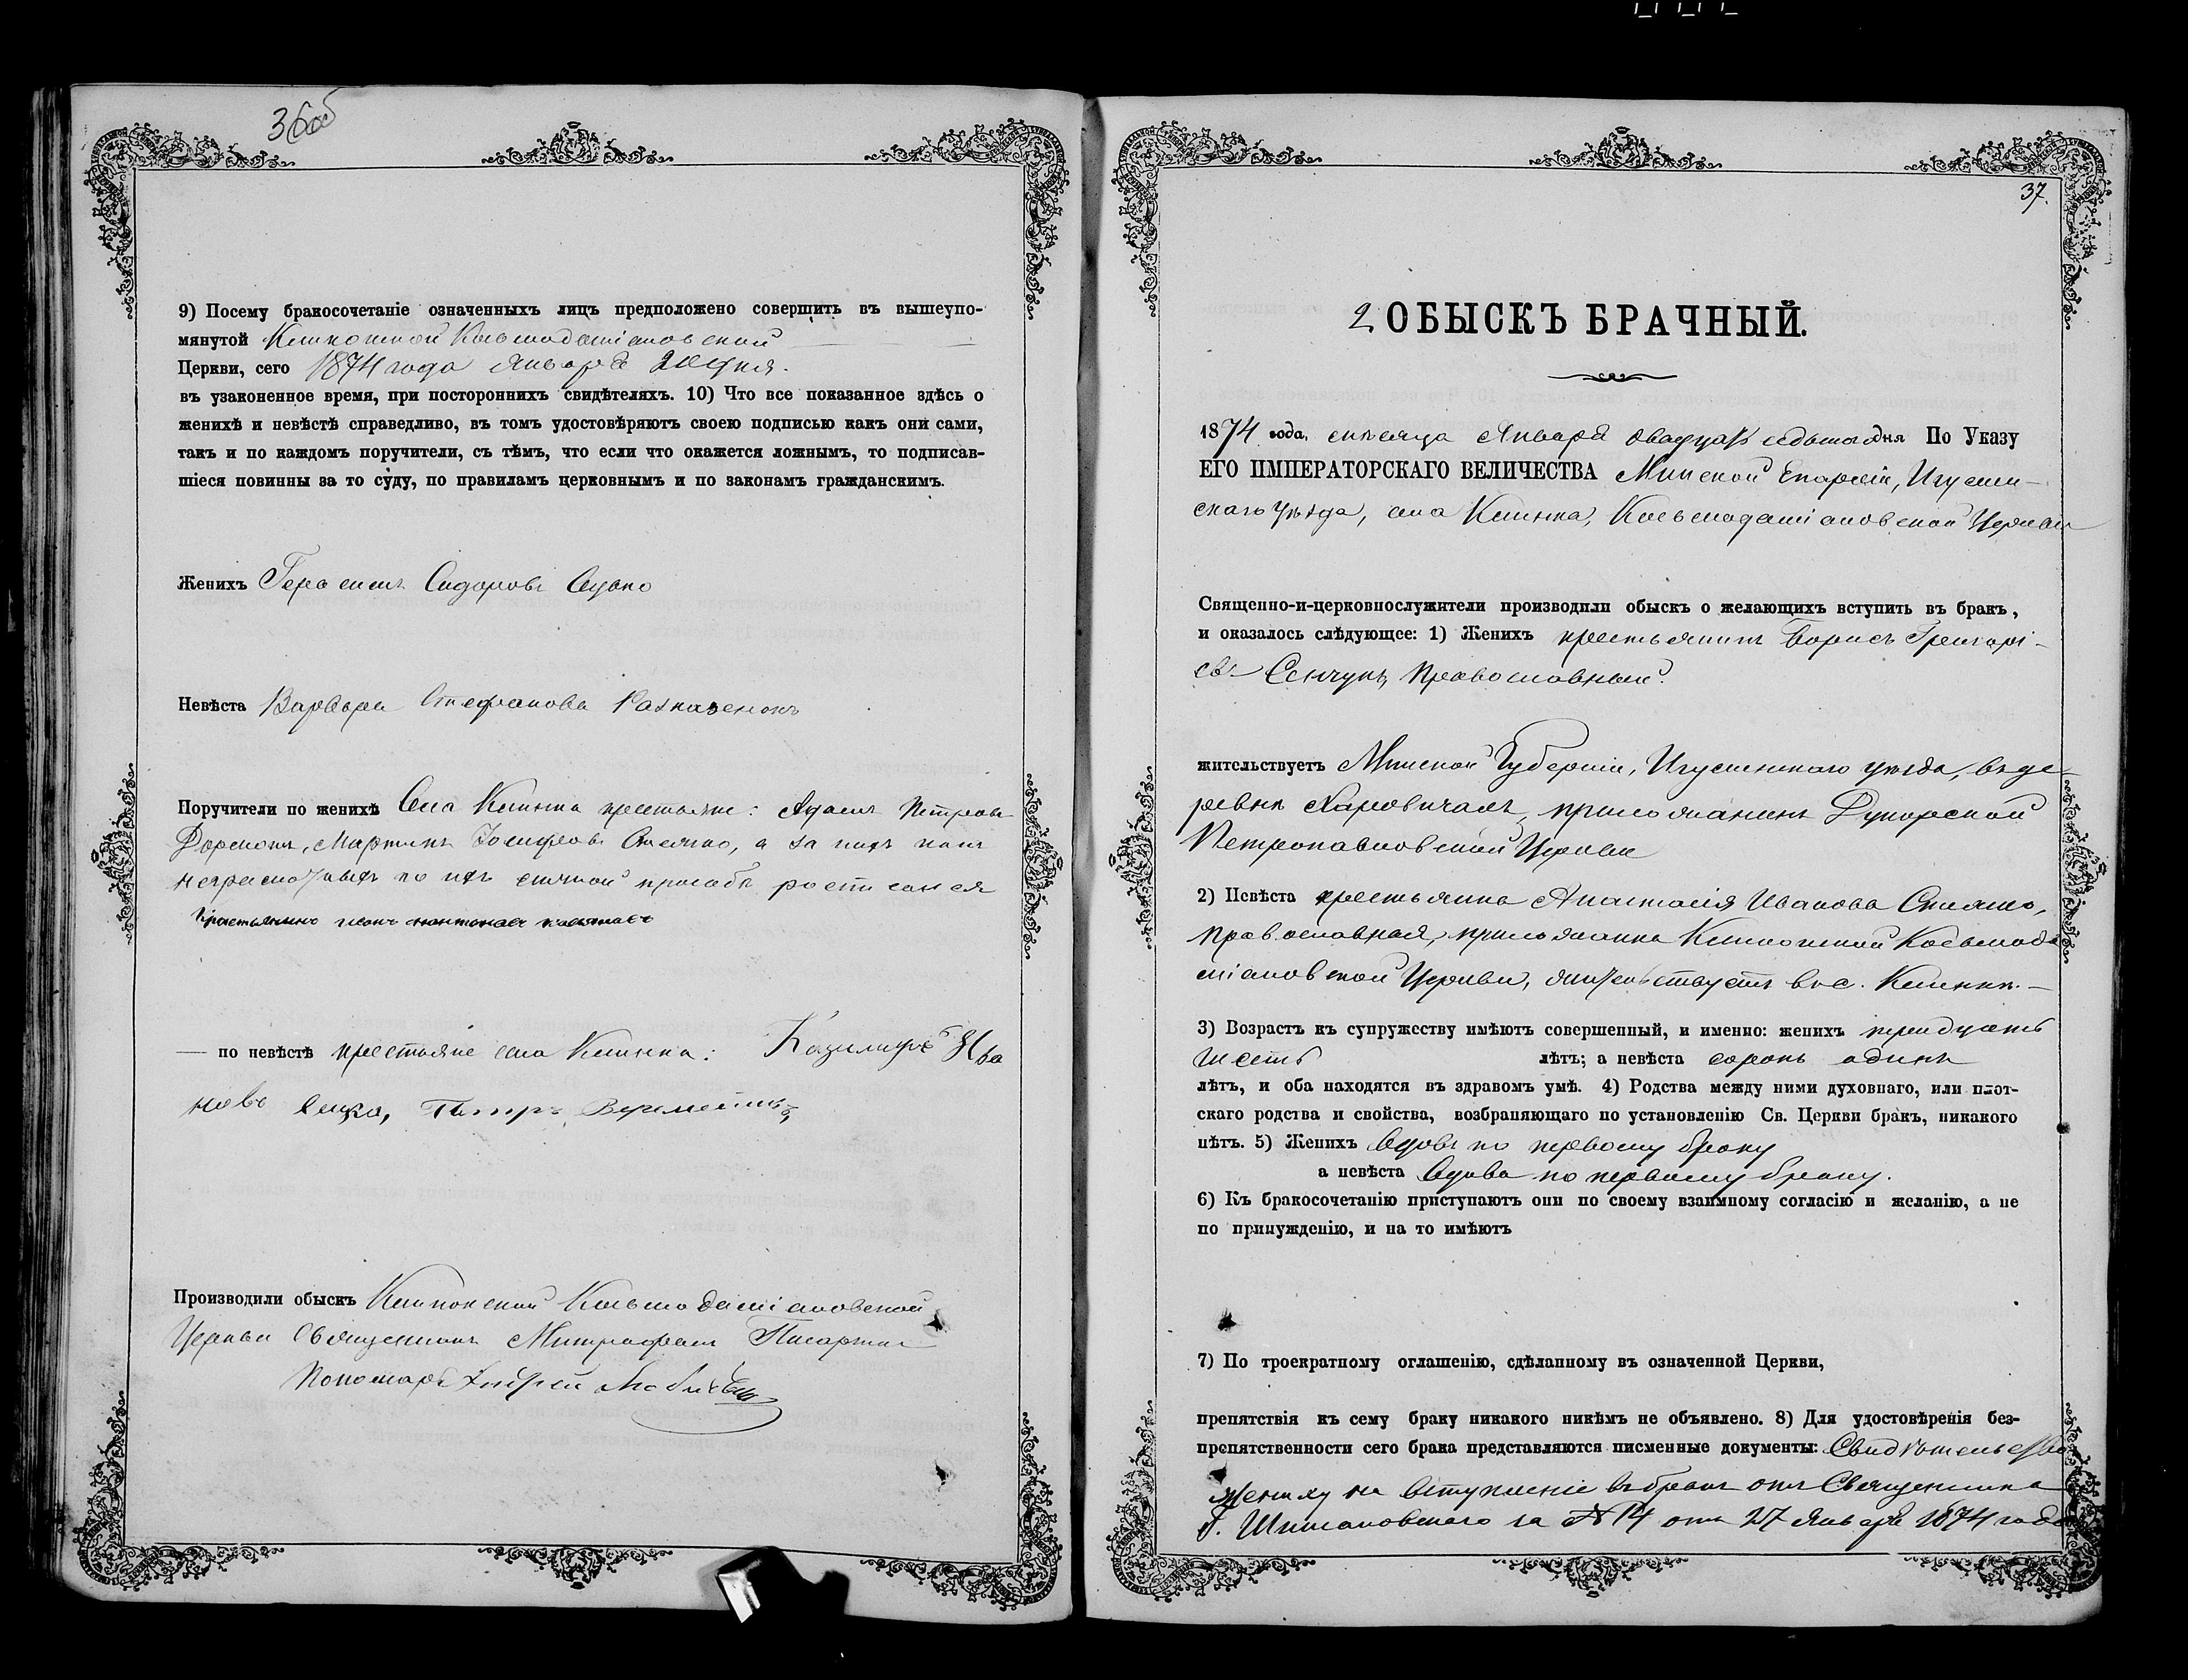 36об
9) Посему бракосочетаніе означенныхъ лицъ предположено совершить въ вышеупо-
мянутой Клинокской Косьмодаміановской
Церкви, сего 1874 года Января 20 дня.
въ узаконенное время, при постороннихъ свидѣтеляхъ. 10) Что все показанное здѣсь о
женихѣ и невѣстѣ справедливо, въ томъ удостовѣряютъ своею подписью какъ они сами,
такъ и по каждомъ поручители, съ тѣмъ, что если что окажется ложнымъ, то подписав-
шіеся повинны за то суду, по правиламъ церковнымъ и по законамъ гражданскимъ.
Женихъ Герасимъ Сидоровъ
Невѣста Варвара Стефанова
Поручители по женихѣ Села Клинка крестьяне: Адамъ Петровъ
Мартинъ Іосифовъ а за нихъ какъ
неграмотныхъ по ихъ личной прозьбѣ росписался
Крестьянинъ
— по невѣстѣ крестьяне села Клинка: Казимиръ Ива
новъ Петръ
Производили обыскъ Клинокской Косьмодаміановской
Церкви Священникъ Митрофанъ
Пономарь Андрей
37.
2 ОБЫСКЪ БРАЧНЫЙ.
1874 года, мѣсяца Января двадцать седьмого дня По Указу
ЕГО ИМПЕРАТОРСКАГО ВЕЛИЧЕСТВА Минской Епархіи, Игумен-
скаго уѣзда, села Клинка, Косьмодаміановской Церкви
Священно-и-церковнослужители производили обыскъ о желающихъ вступить въ бракъ,
и оказалось слѣдующее: 1) Женихъ крестьянинъ Борисъ Григорі-
евъ Сенчукъ, Православный.
жительствуетъ Минской Губерніи, Игуменскаго уѣзда, въ де-
ревнѣ Каровичахъ, прихожанинъ Дукорской
Петропавловской Церкви
2) Невѣста крестьянка Анастасія Иванова
православная, прихожанка Клинокской Косьмода
міановской Церкви, жительствуетъ въ с. Клинкѣ.
3) Возрастъ къ супружеству имѣютъ совершенный, и именно: женихъ тридцать
шесть лѣтъ; а невѣста сорокъ одинъ
лѣтъ, и оба находятся въ здравомъ умѣ. 4) Родства между ними духовнаго, или плот-
скаго родства и свойства, возбраняющаго по установленію Св. Церкви бракъ, никакого
нѣтъ. 5) Женихъ Вдовъ по первому браку
а невѣста Вдова по первому браку.
6) Къ бракосочетанію приступаютъ они по своему взаимному согласію и желанію, а не
по принужденію, и на то имѣютъ
7) По троекратному оглашенію, сдѣланному въ означенной Церкви,
препятствія къ сему браку никакого никѣмъ не объявлено. 8) Для удостовѣренія без-
препятственности сего брака представляются писменные документы: Свидѣтельство
жениху на вступленіе въ бракъ отъ Священника
за № 14 отъ 27 Января 1874 года